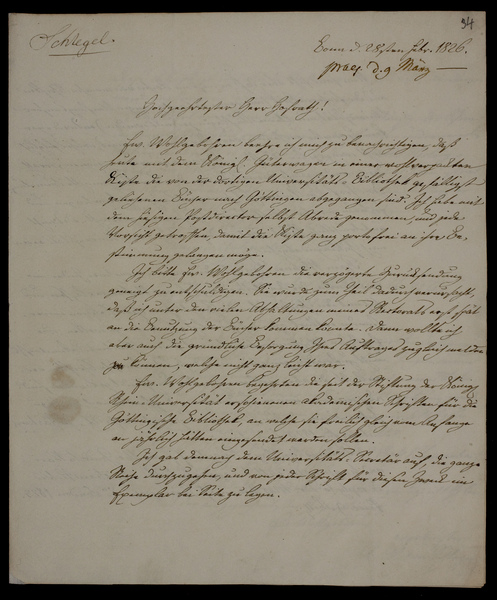 94
Schlegel.
Bonn d. 28sten Febr. 1826.
praes. d. 9 März
Hochgeehrtester Herr Hofrath!
Ew. Wohlgebohren beehre ich mich zu benachrichtigen, daß
heute mit dem Königl. Güterwagen in einer wohl verpackten
Kiste die von der dortigen Universitäts-Bibliothek gefälligst
geliehenen Bücher nach Göttingen abgegangen sind. Ich habe mit
dem hiesigen Postdirector selbst Abrede genommen, und jede
Vorsicht getroffen, damit die Kiste ganz portofrei an ihre Be-
stimmung gelangen möge.
Ich bitte Ew. Wohlgebohren die verzögerte Zurücksendung
geneigt zu entschuldigen. Sie wurde zum Theil dadurch verursacht,
daß ich unter den vielen Abhaltungen meines Rectorats erst spät
an die Benutzung der Bücher kommen konnte. Dann wollte ich
aber auch die gründliche Besorgung Ihres Auftrages zugleich melden
zu können, welche nicht ganz leicht war.
Ew. Wohlgebohren begehrten die seit der Stiftung der Königl.
Rhein-Universität erschienenen akademischen Schriften für die
Göttingische Bibliothek, an welche sie freilich gleich vom Anfange
an jährlich hätten eingesendet werden sollen.
Ich gab demnach dem Universitäts-Secretär auf, die ganze
Reihe durchzugehen, und von jeder Schrift für diesen Zweck ein
Exemplar bei Seite zu legen.